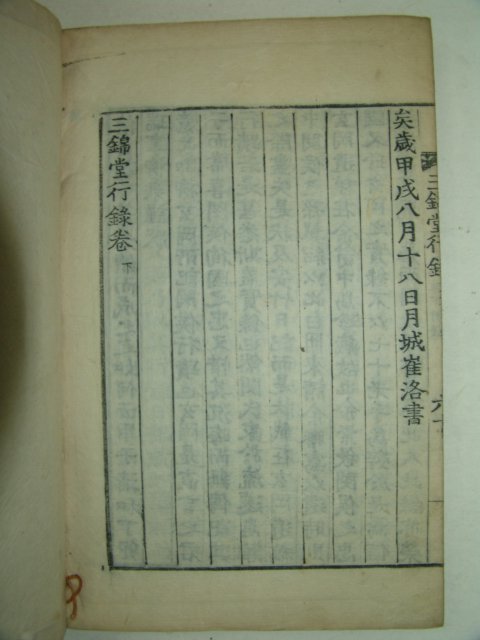 矣歲甲戌八月十八日月城崔洛書
三錦堂行錄卷下
三錦堂行錄